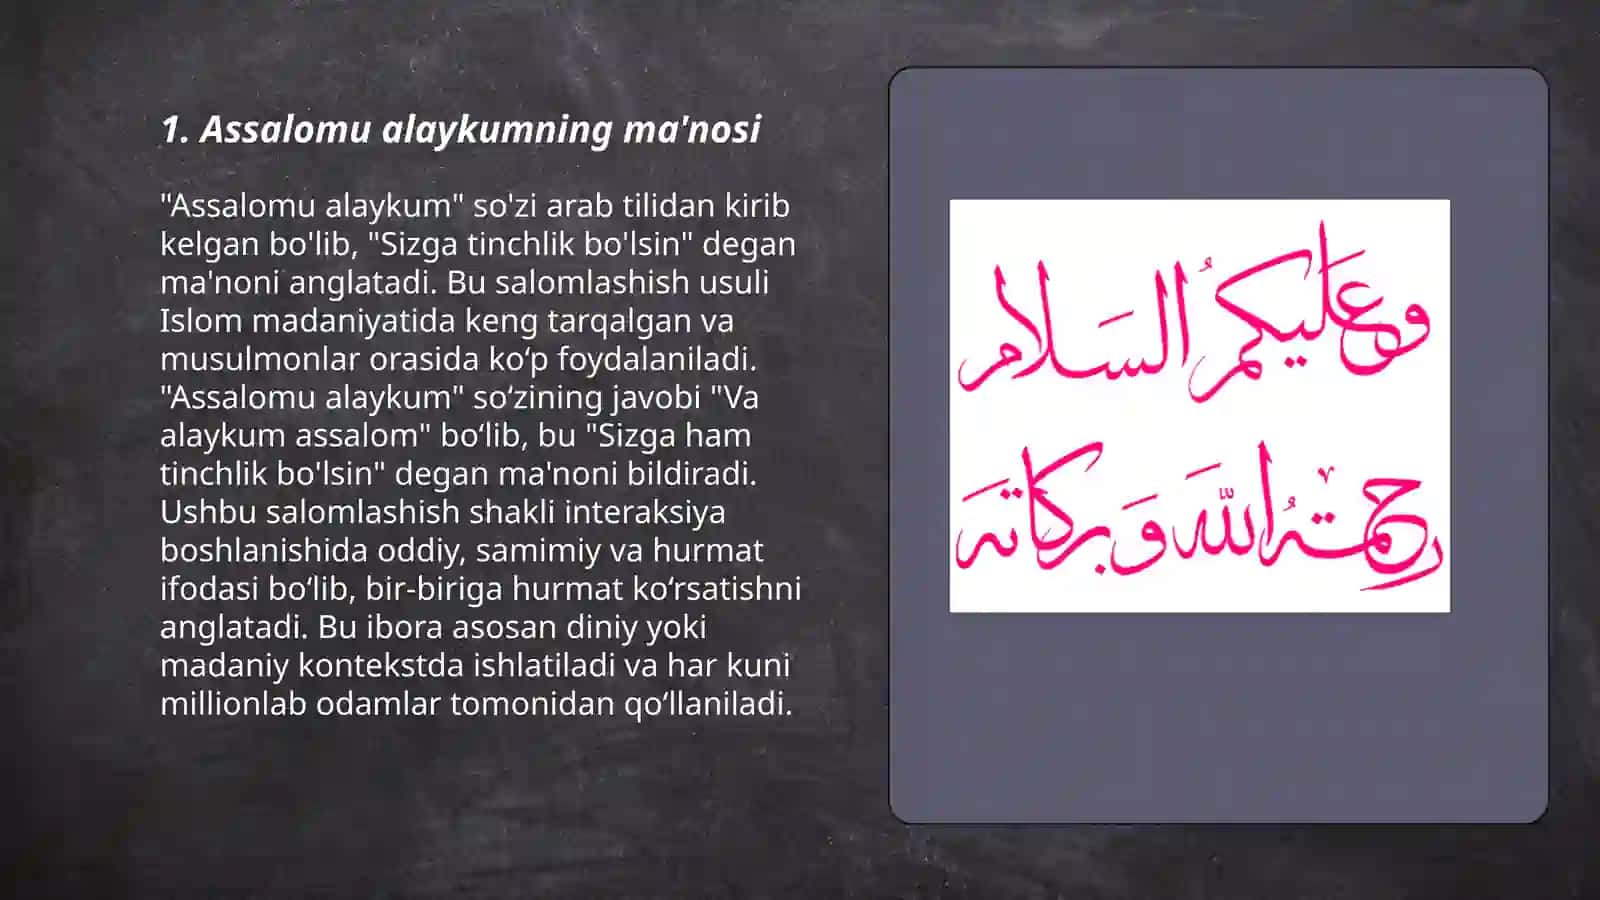 1. Assalomu alaykumning ma'nosi
"Assalomu alaykum" so'zi arab tilidan kirib
kelgan bo'lib, "Sizga tinchlik bo'lsin" degan
ma'noni anglatadi. Bu salomlashish usuli
Islom madaniyatida keng tarqalgan va
musulmonlar orasida ko‘p foydalaniladi.
"Assalomu alaykum" so‘zining javobi "Va
alaykum assalom" bo‘lib, bu "Sizga ham
tinchlik bo'lsin" degan ma'noni bildiradi.
Ushbu salomlashish shakli interaksiya
boshlanishida oddiy, samimiy va hurmat
ifodasi bo‘lib, bir-biriga hurmat ko‘rsatishni
anglatadi. Bu ibora asosan diniy yoki
madaniy kontekstda ishlatiladi va har kuni
millionlab odamlar tomonidan qo‘llaniladi.
وَعَليكمُ السَلام
رحمتهُ اللهَ وَبركاتهَ